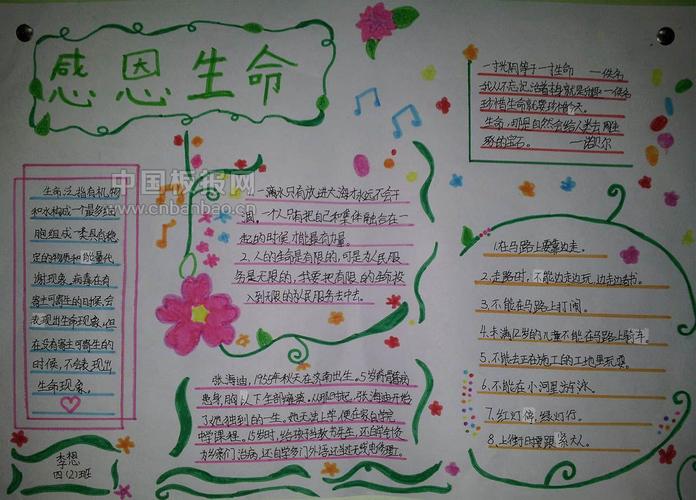 感恩生命
中国板报网
www.cnbanbao.cn
生命泛指有机物
和水构成一个最多细
胞组成一类具有稳
定的物质和能量代
谢现象。病毒在有
寄主可寄生的时候,会
表现出生命现象,但
在没有寄主可寄生的
时候,不会表现出
生命现象。
李想
四(2)班
1、一滴水只有放进大海才永远不会干
涸,一个人只有把自己和集体融合在一
起的时候才能最有力量。
2、人的生命是有限的,可是为人民服
务是无限的,我要把有限的生命投
入到无限的为人民服务去中去。
张海迪,1955年秋天在济南出生。5岁患脊髓病
患身胸以下全部瘫痪。从那时起,张海迪开始
了她独到的一生。她无法上学,便在家自学
中学课程。15岁时,给孩子教书先生,还自学针灸
乡亲们治病,还自学多门外语还当过无线电修理工。
一寸光阴等于一寸生命 —佚名
我从不忘记活着本身就是乐趣—佚名
珍惜生命就要珍惜今天。
生命,那是自然会给人类去雕
琢的宝石。 —诺贝尔
1.在马路上要靠边走。
2.走路时,不能边走边玩,边走边看书。
3.不能在马路上打闹。
4.未满12岁的儿童不能在马路上骑车。
5.不能去正在施工的工地里玩耍。
6.不能在小河里游泳。
7.红灯停,绿灯行。
8.上街时要跟紧大人。